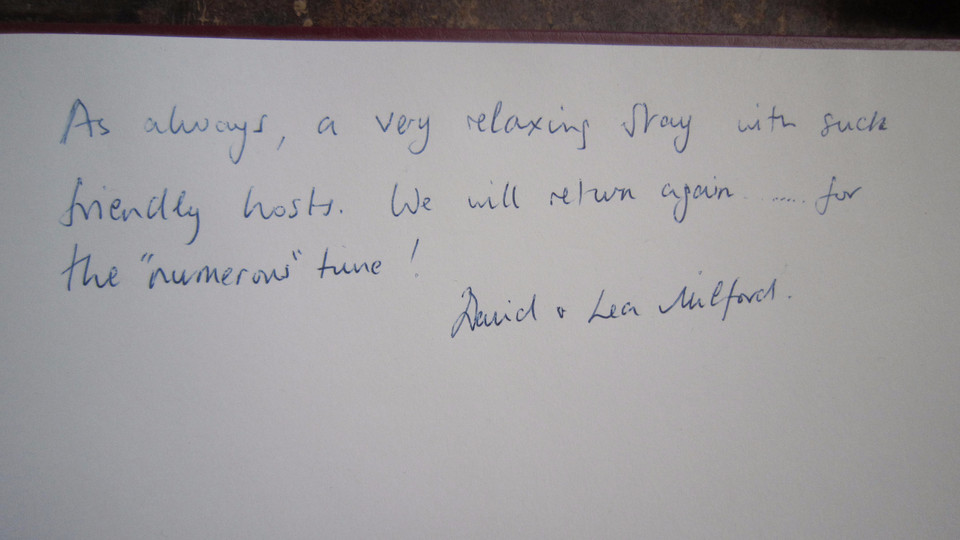 As always, a very relaxing stay with such
friendly hosts. We will return again ...... for
the "numerous" time!
David + Lea Milford.